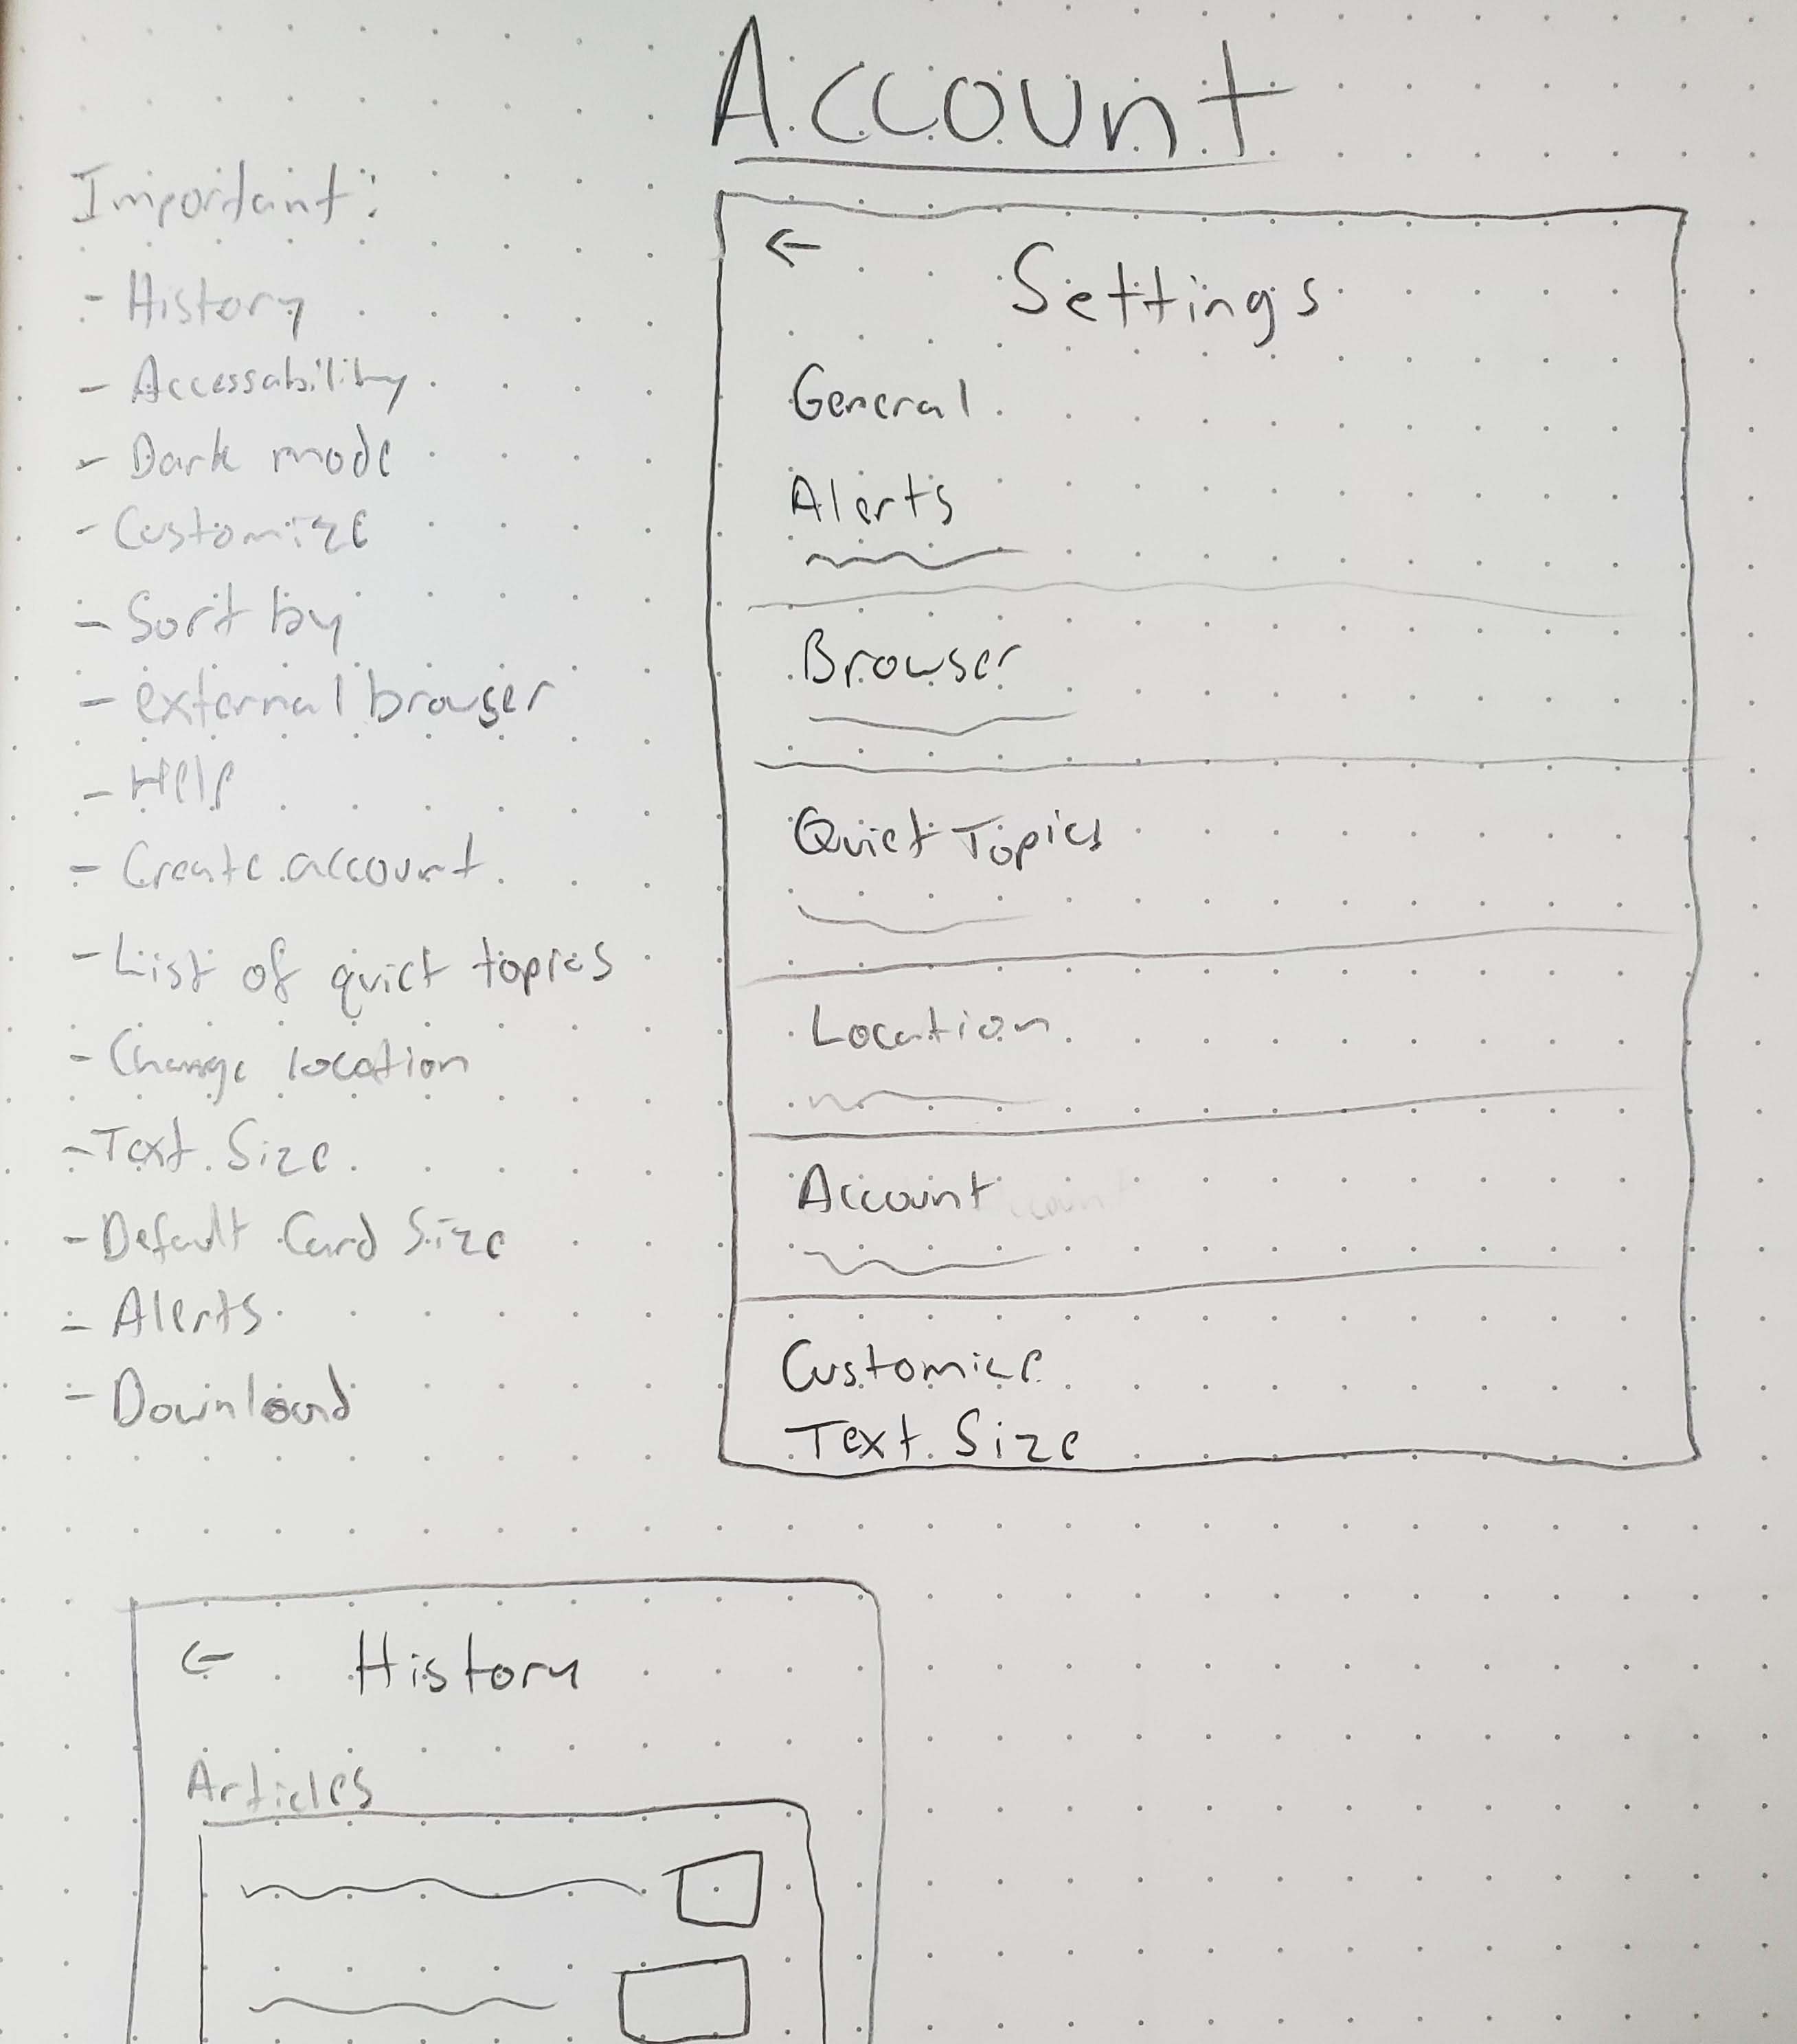 Account
Important:
- History
- Accessability
- Dark mode
- Customize
- Sort by
- external browser
- Help
- Create account
- List of quiet topics
- Change location
- Text Size
- Default Card Size
- Alerts
- Download
← Settings
General
Alerts
Browser
Quiet Topics
Location
Account
Customize
Text Size
← History
Articles